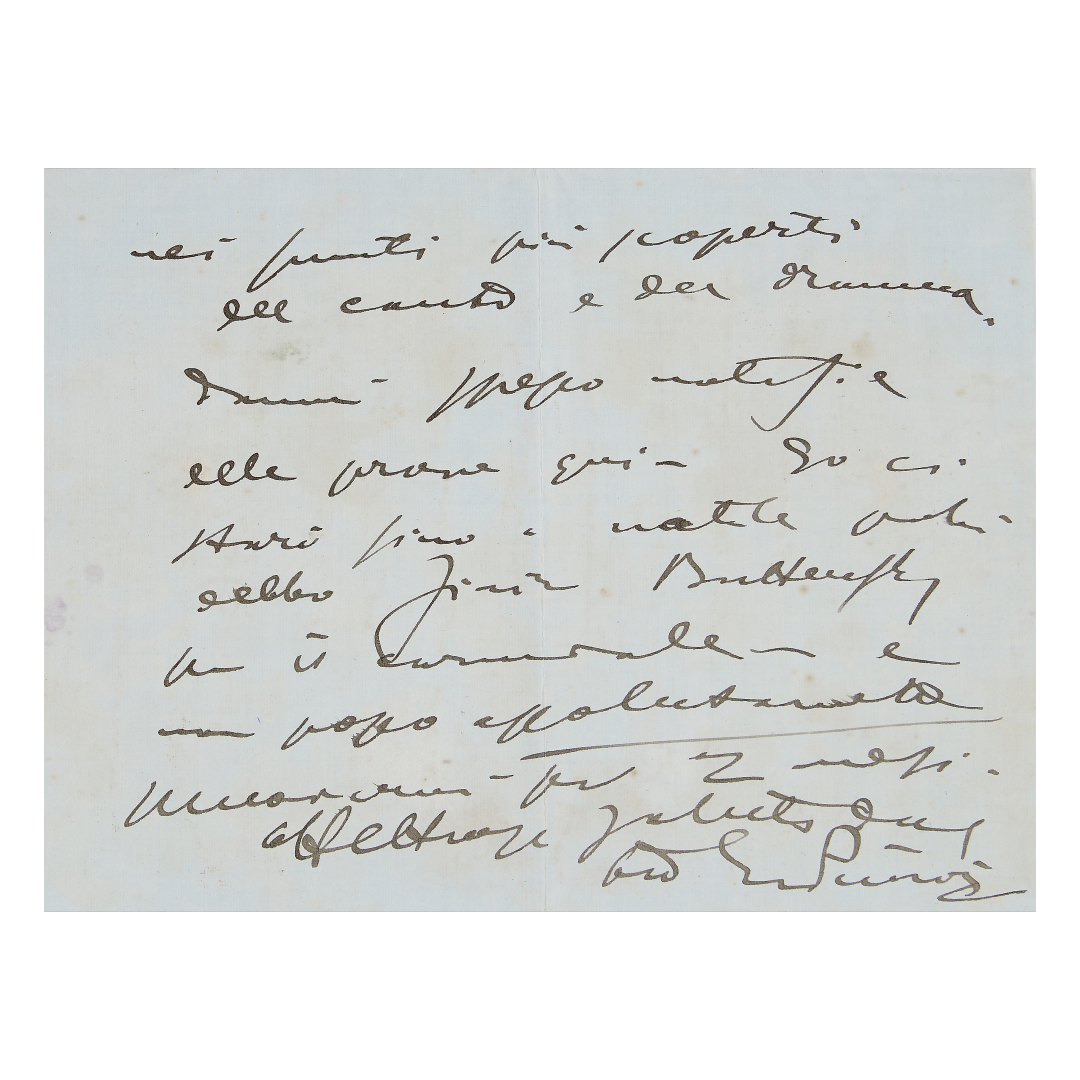 nei punti più scoperti
del canto e del dramma.
Dammi spesso notizie
delle prove qui - Io ci
starò fino a natale perchè
debbo finir Butterfly
per il carnevale - e
non posso assolutamente
muovermi per 2 mesi.
Affettuosi saluti dal
tuo GPuccini